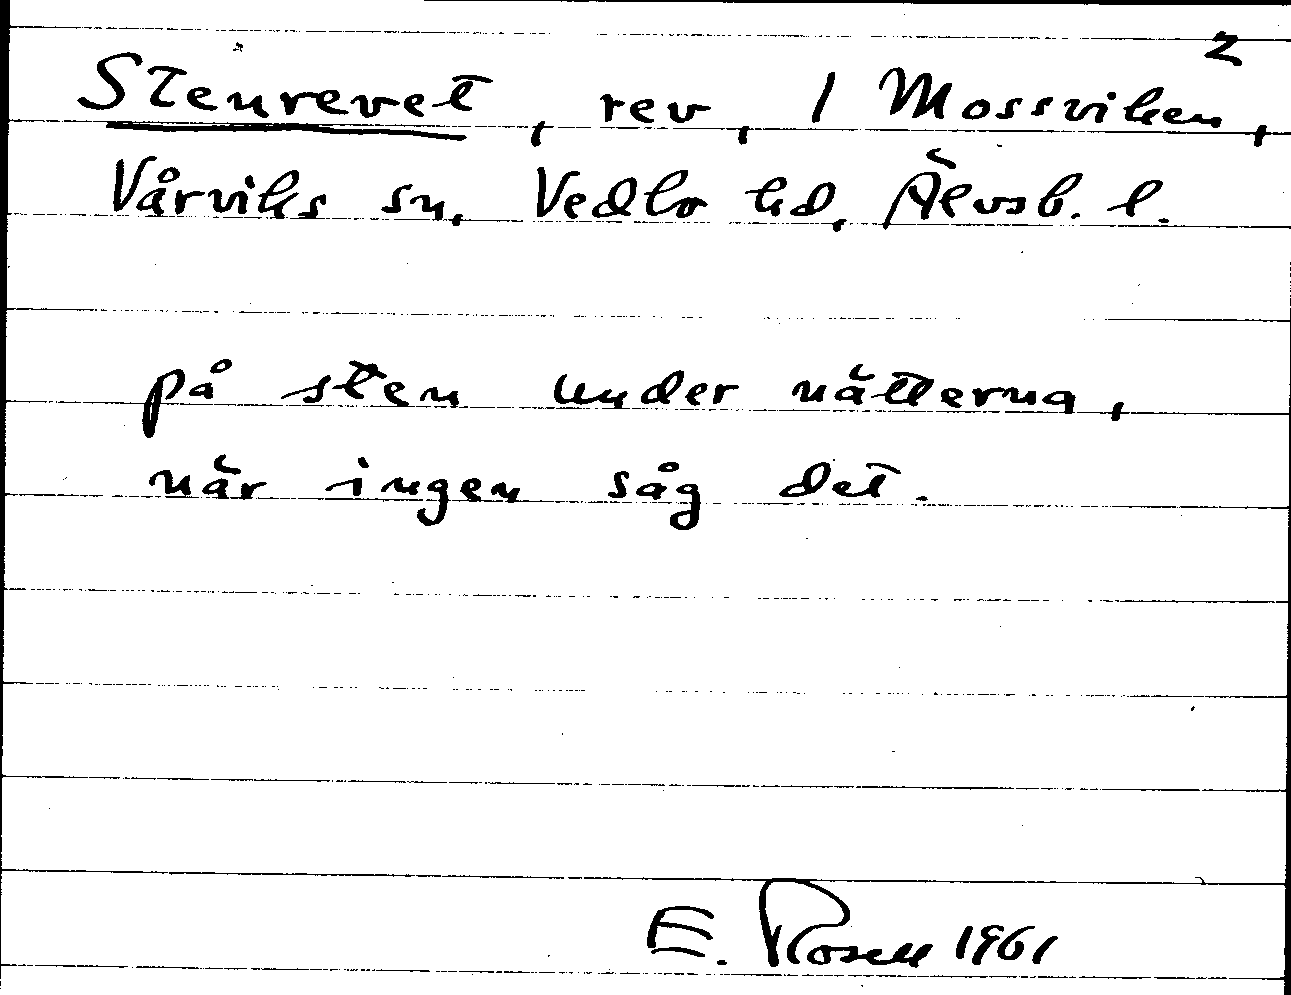 2
Stenrevet, rev, I Mossviken,
Vårviks sn, Vedbo hd, Älvsb. l.
på sten under nätterna,
när ingen såg det.
E. Rosell 1961